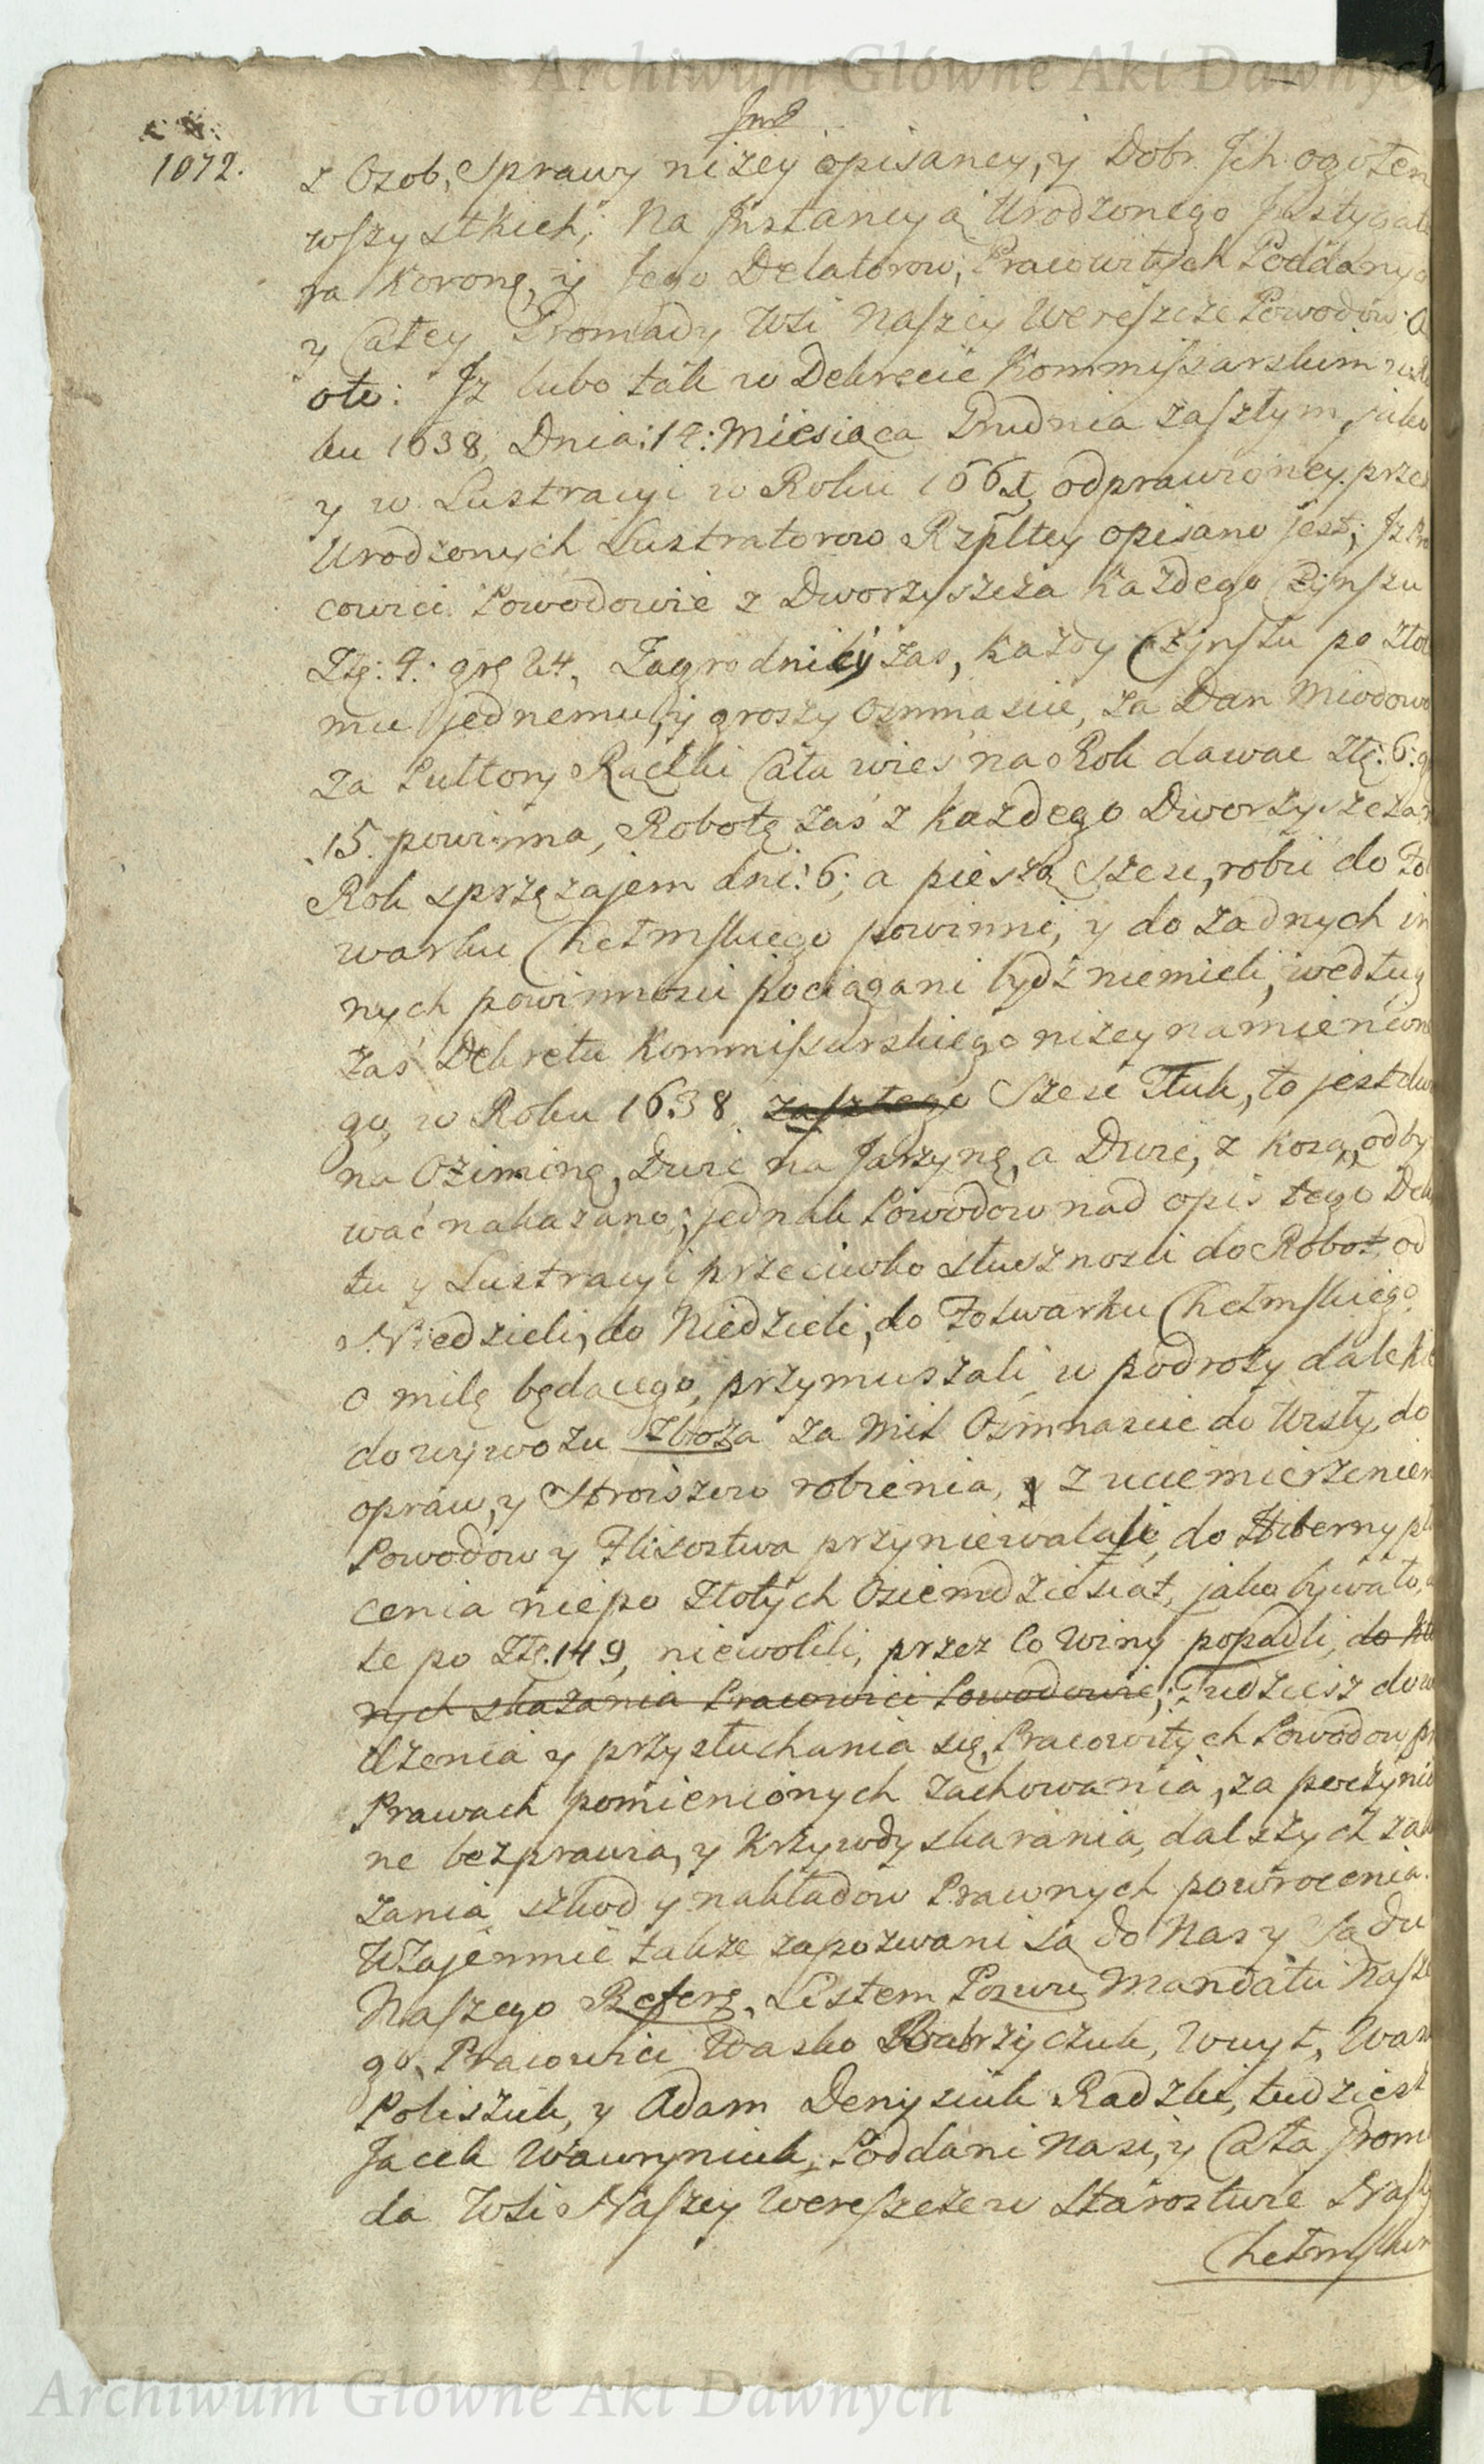 Archiwum Główne Akt Dawnych
1072.
z Osob, Sprawy niżey opisaney, y Dobr Ich ogołem
wszystkich; Na Instancyą Urodzonego Instygato
ra Koronę, y Jego Delatorow, Pracowitych Poddanyc
y Całey Gromady Wsi Naszey Wereszcze Powodów
oto: Iż lubo tak w Dekrecie Kommissarskim w Ro
ku 1638, Dnia: 12: Miesiąca Grudnia zaszłym, jako
y w Lustracyi w Roku 1661, odprawioney przez
Urodzonych Lustratorow Rzpltey opisano jest; Iż Pra
cowici Powodowie z Dworzyszcza Każdego Czynszu
Złę: 4: grę 24, Zagrodnicy zas, Każdy Czynszu po Złote
mu jednemu, y groszy Osmnascie, za Dan Miodowo
za Pułtory Rączki Cała wieś na Rok dawac Złę: 6: g
15. powinna, Robotę zaś z Każdego Dworzyszcza n
Rok sprzężajem dni: 6; a pieszą Szesc, robic do Fol
warku Chełmskiego powinni, y do żadnych in
nych powinnosci pociągani bydź niemieli, według
zaś Dekretu Kommissarskiego niżey namienione
go, w Roku 1638 zaszłego Szesc Tłuk, to jest dwi
na Oziminę, Dwie na Jarzynę, a Dwie, z Kosą, odby
wać nakazano; jednak Powodow nad opis tego Dekre
tu y Lustracyi przeciwko słusznosci do Robot, od
Niedzieli, do Niedzieli, do Folwarku Chełmskiego
o milę będącego, przymuszali, w podroży dalekie
do wywozu Zboża za Mil Osmnascie do Wisły, do
opraw, y Strożow robienia, y z uciemierzeniem
Powodow y Flisostwa przyniewalali, do Hiberny pła
cenia niepo Złotych Osiemdziesiąt, jako bywało, a
le po Złę. 149, niewolili, przez co Winy popadli, do któ
rych skazania Pracowici Powodowie; Tudziesz do wi
dzenia y przysłuchania się, Pracowitych Powodow pr
Prawach pomienionych zachowania, za poczynio
ne bezprawia, y Krzywdy skarania, dalszych zaka
zania, szkod y nakładow Prawnych powrocenia.
Wzajemnie także zapozwani są do Nas y Sądu
Naszego Referę. Listem Pozwu Mandatu Nasze
go, Pracowici Wasko Wabrzyczuk, Wuyt, Wasko
Poliszuk, y Adam Denysiuk Radzki, tudziesz
Jacek Wawryniuk, Poddani Nasi, y Cała Groma
da Wsi Naszey Wereszcze w Starostwie Naszy
Chełmskim
Archiwum Główne Akt Dawnych